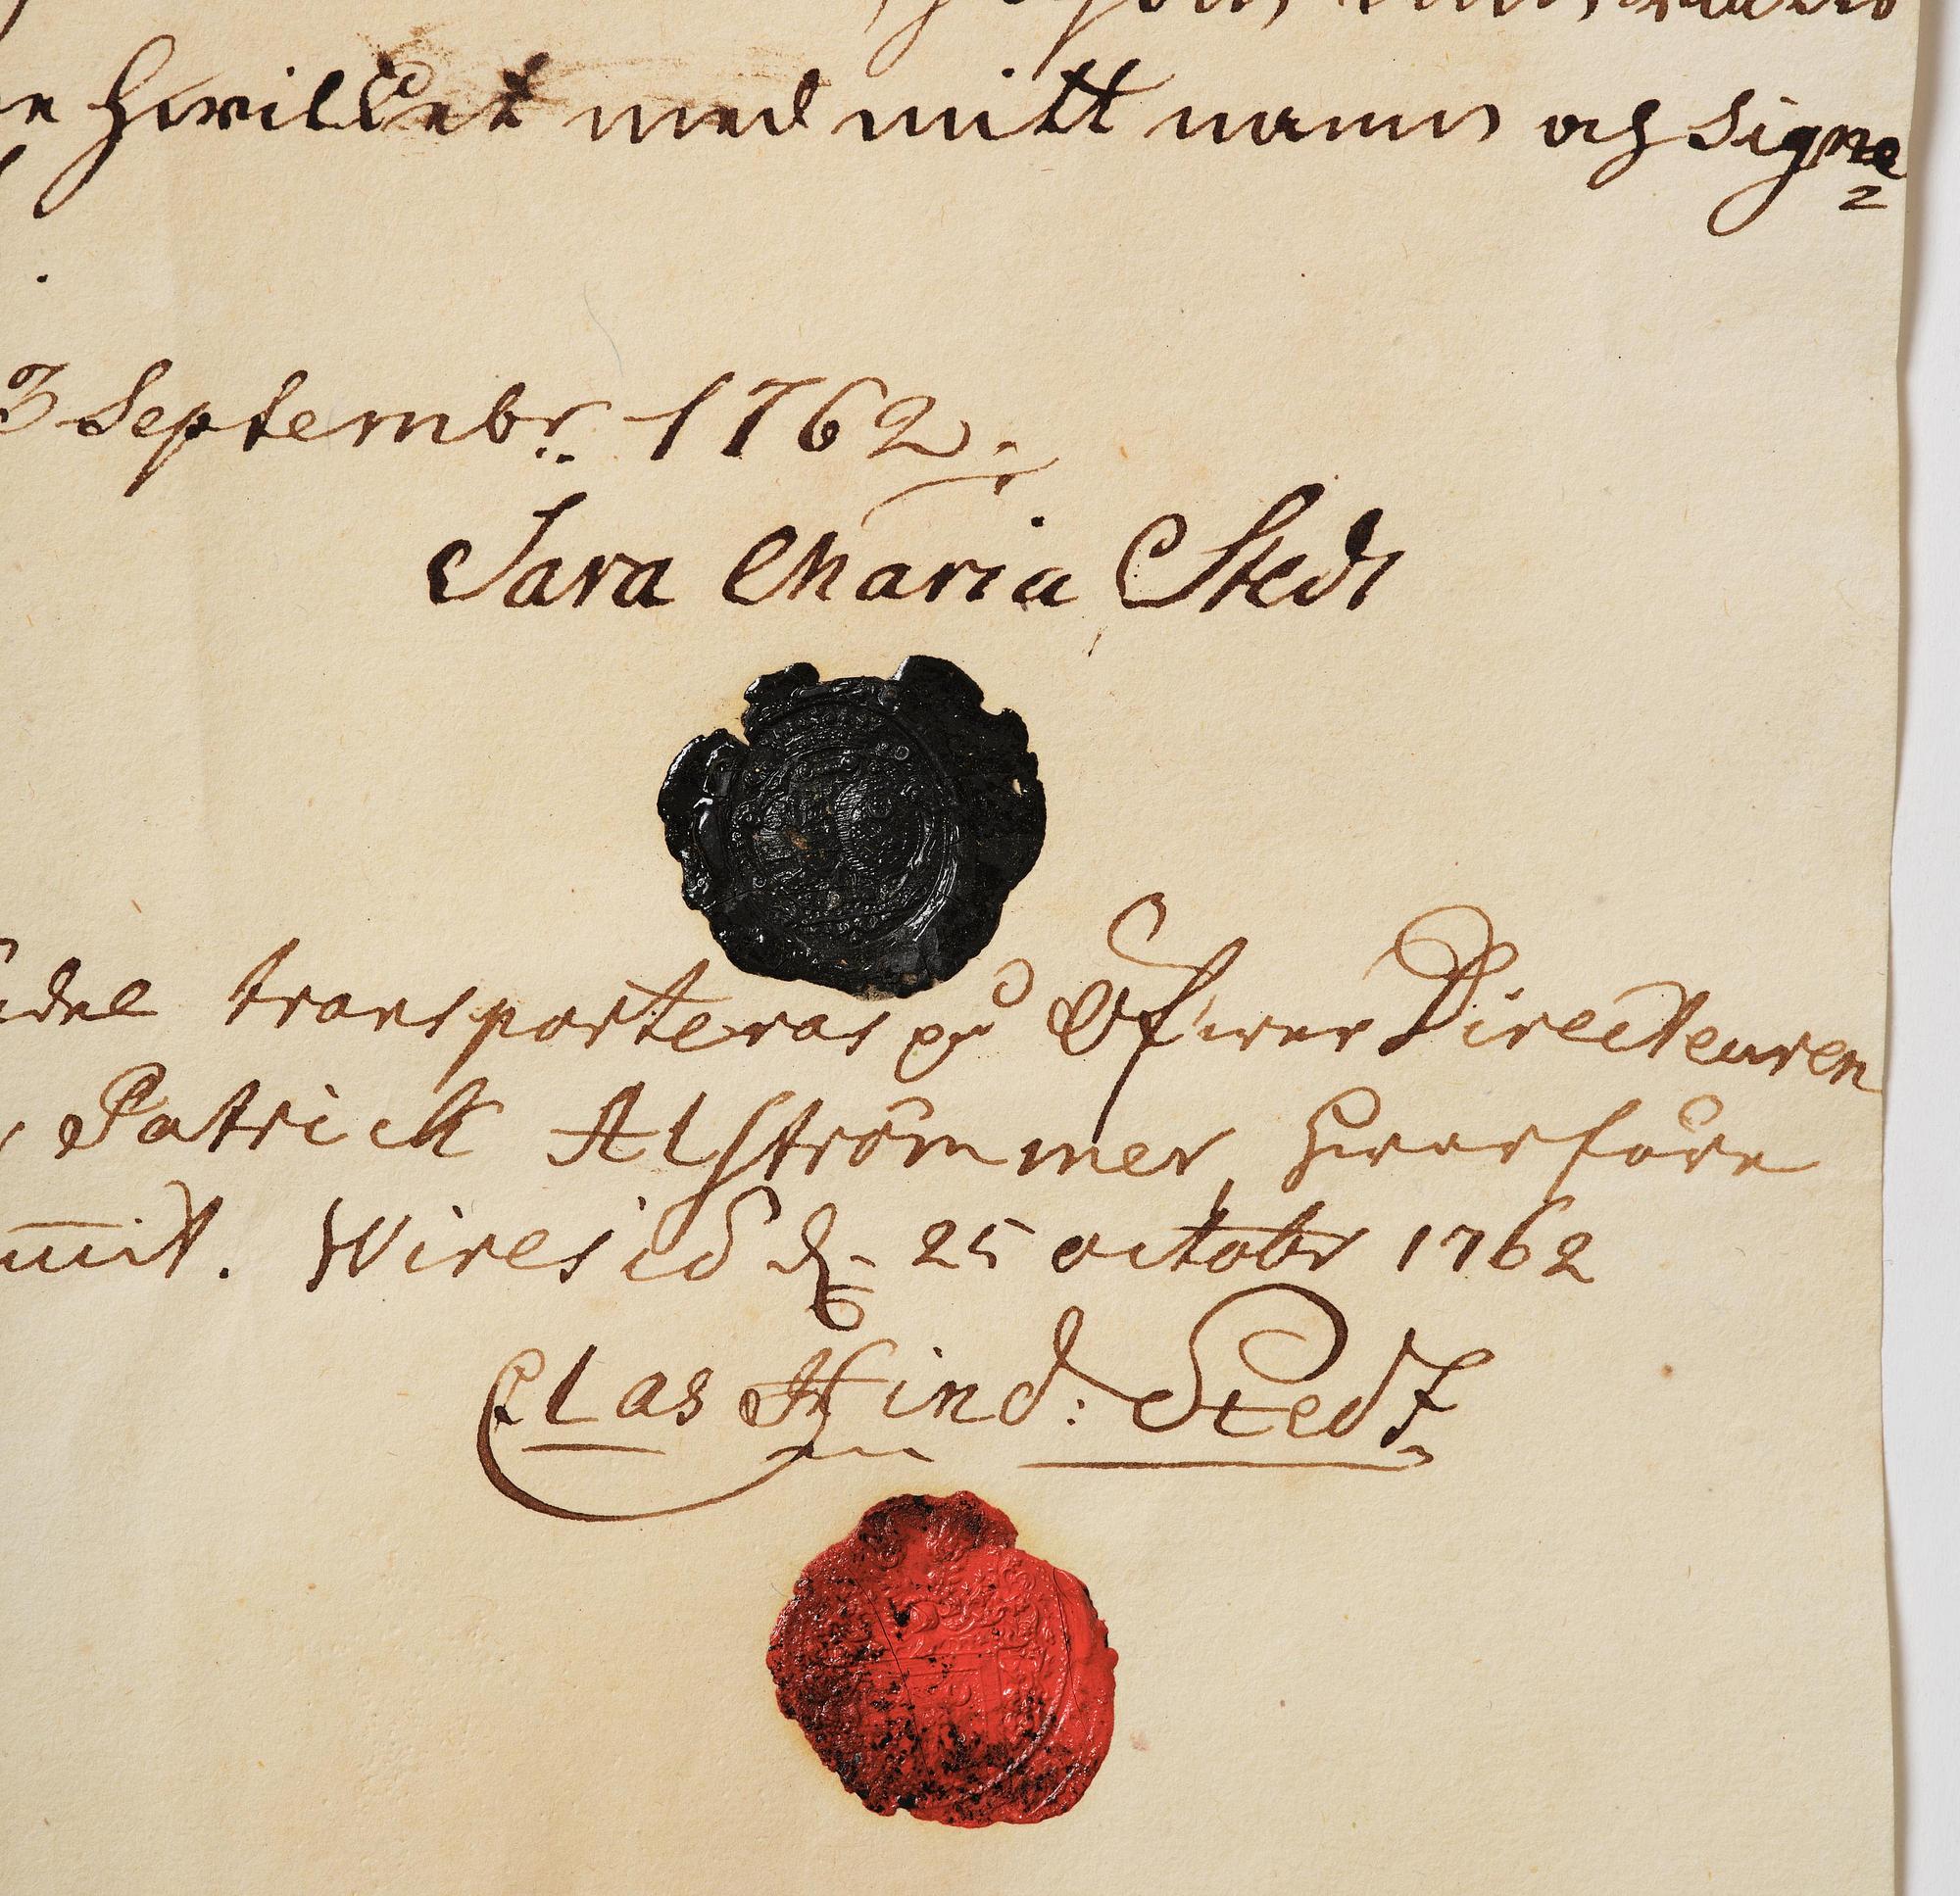 Hwilket med mitt namn och Signe=
3 Septembr. 1762.
Sara Maria Stedt
transporteras på Öfwer Directeuren
Patrick Alströmmer, Hwarföre
Wiresiö d. 25 octobr 1762
Clas Hind: Stedt